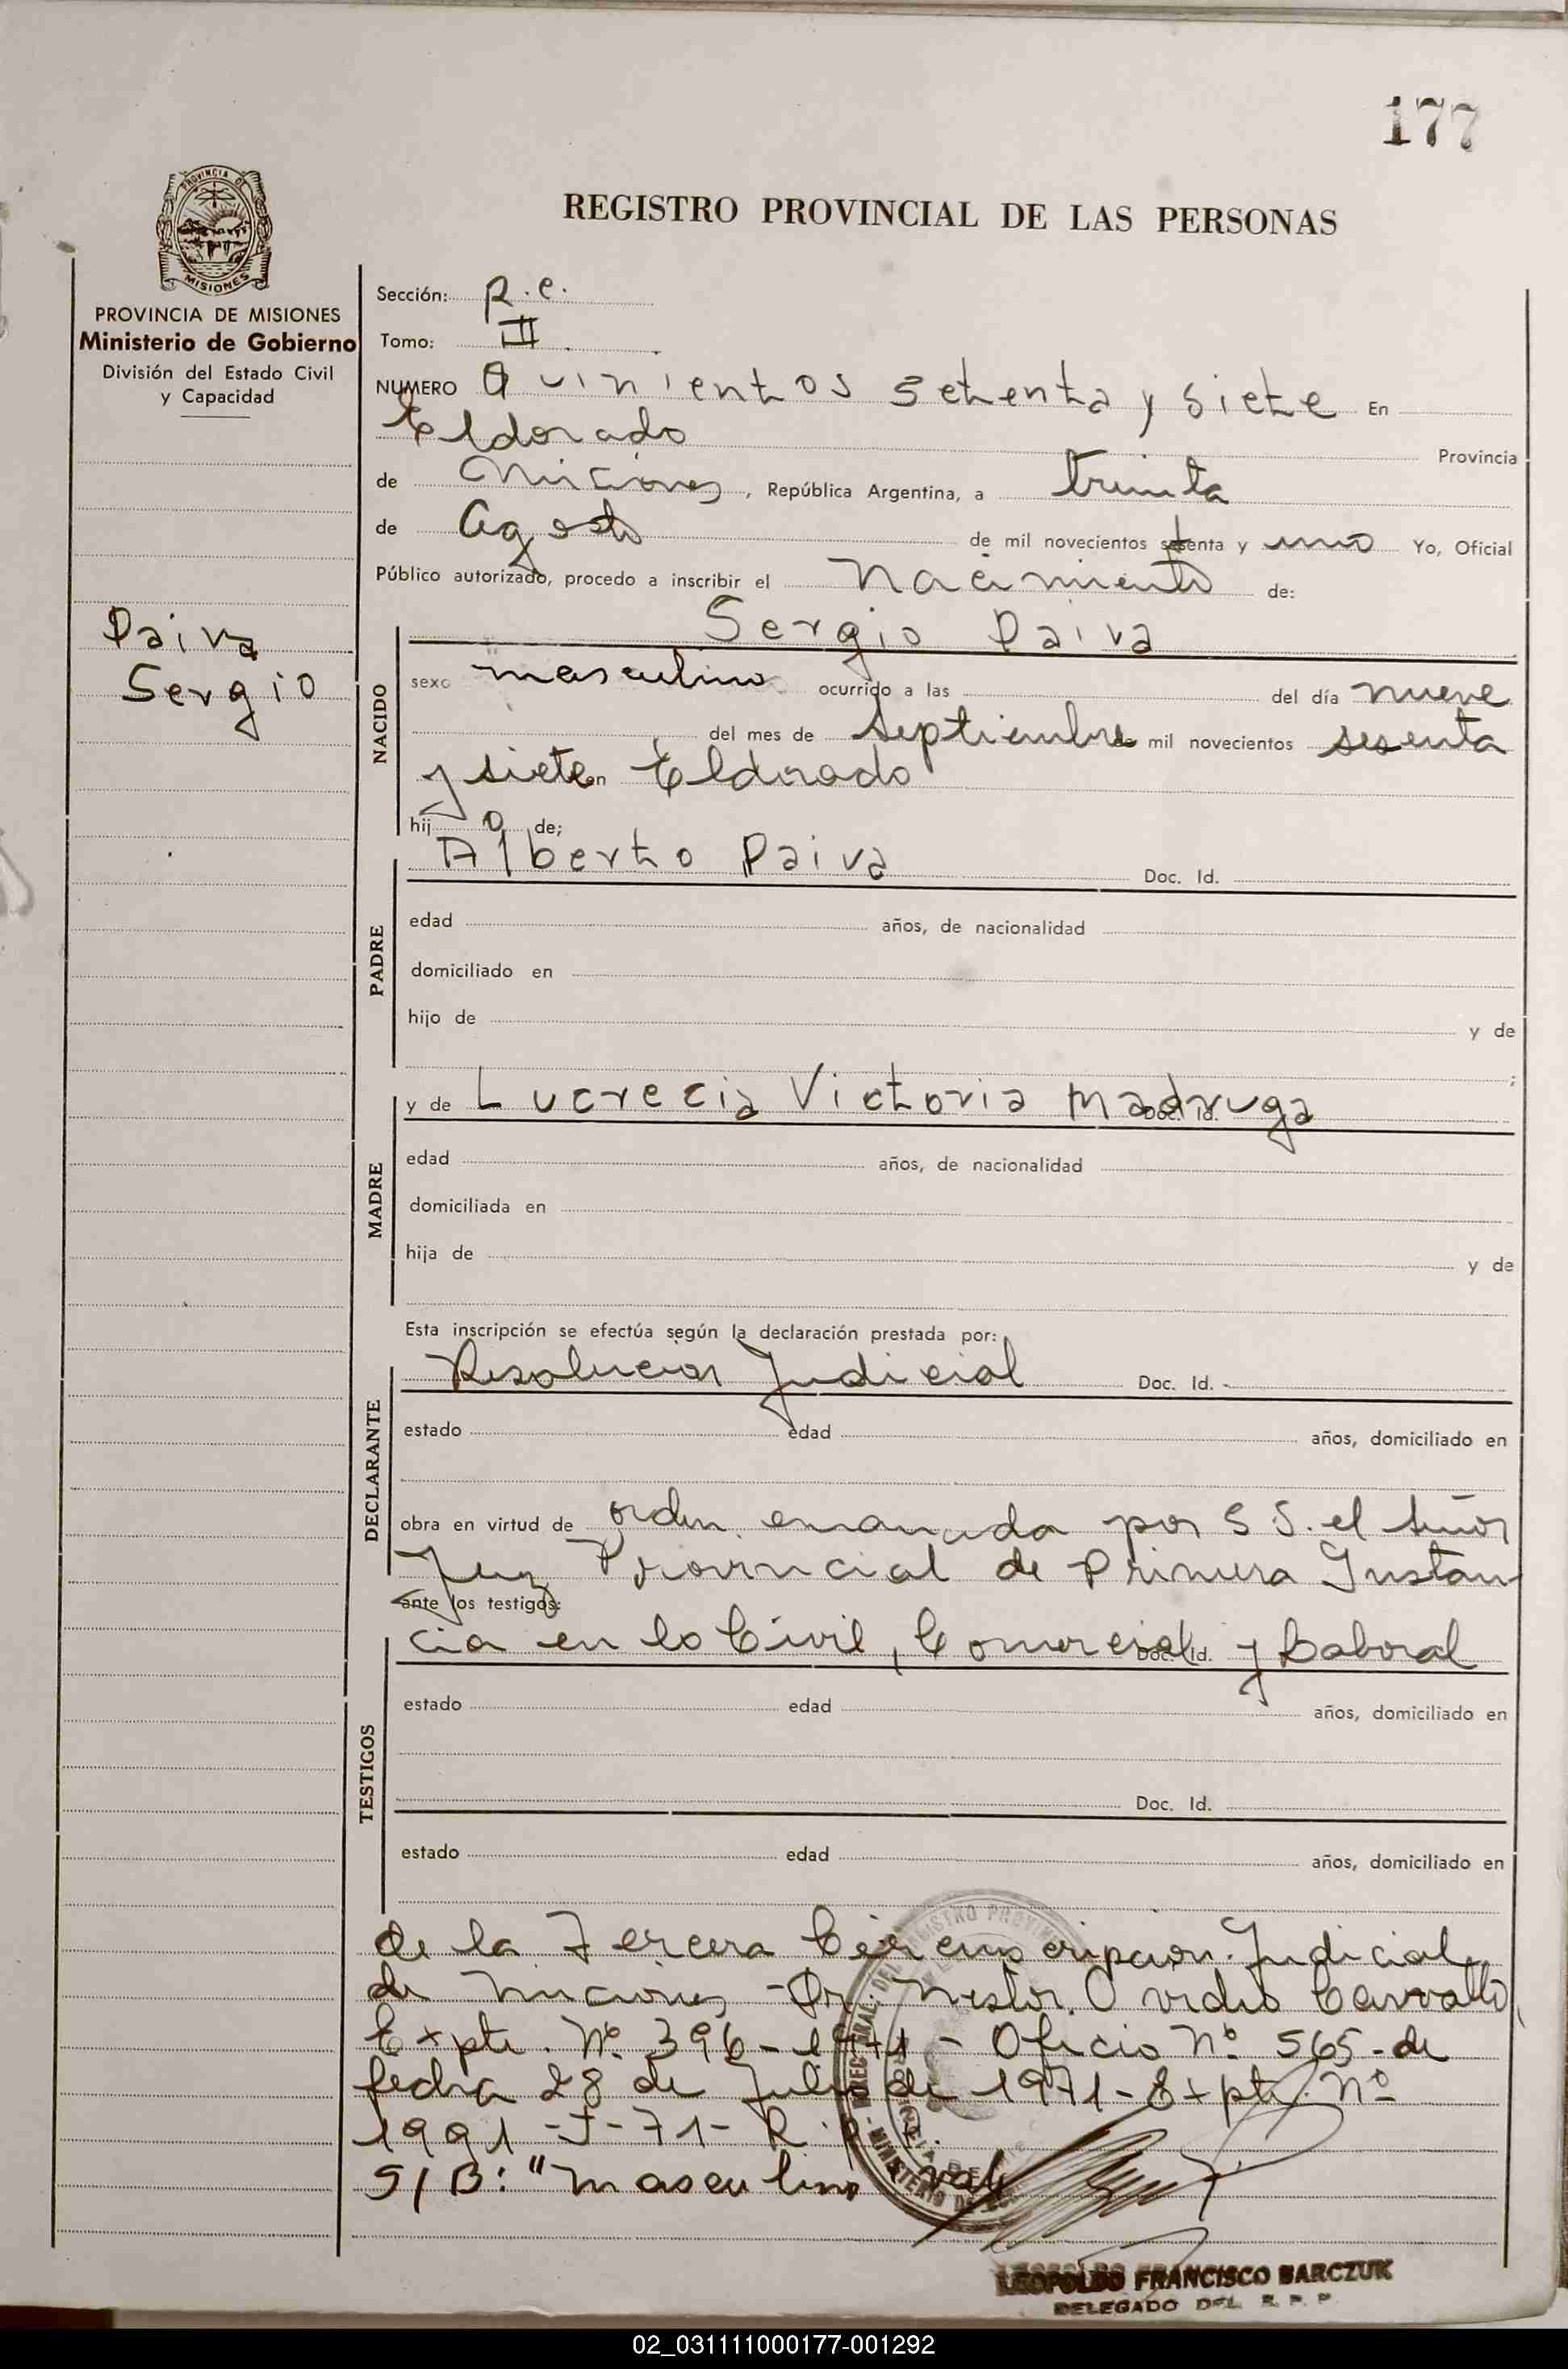 177
REGISTRO PROVINCIAL DE LAS PERSONAS
PROVINCIA DE
MISIONES
PROVINCIA DE MISIONES
Ministerio de Gobierno
División del Estado Civil
y Capacidad
Paiva
Sergio
Sección: R.e.
Tomo: II
NUMERO Quinientos setenta y siete En
Eldorado Provincia
de Misiones, República Argentina, a treinta
de Agosto de mil novecientos setenta y uno Yo, Oficial
Público autorizado, procedo a inscribir el Nacimiento de:
NACIDO
Sergio Paiva
sexo masculino ocurrido a las del día nueve
del mes de septiembre de mil novecientos sesenta
y siete en Eldorado
hij o de;
PADRE
Alberto Paiva Doc. Id.
edad años, de nacionalidad
domiciliado en
hijo de y de
;
MADRE
y de Lucrecia Victoria Madruga Doc. Id.
edad años, de nacionalidad
domiciliada en
hija de y de
Esta inscripción se efectúa según la declaración prestada por:
DECLARANTE
Resolucion Judicial Doc. Id.
estado edad años, domiciliado en
obra en virtud de orden emanada por S S. el Señor
Juez Provincial de Primera Instan
ante los testigos:
TESTIGOS
cia en lo Civil, Comercial y Laboral Doc. Id.
estado edad años, domiciliado en
Doc. Id.
estado edad años, domiciliado en
de la Tercera Circunscripcion Judicial
de Misiones - Dr. Nestor Ovidio
Expte. Nº 396-1971 - Oficio Nº 565 - de
fecha 28 de Julio de 1971 - Expte. Nº
1991 - J - 71 - R.P.P.
S/B: "masculino" vale
LEOPOLDO FRANCISCO BARCZUK
DELEGADO DEL R. P. P.
02_031111000177-001292